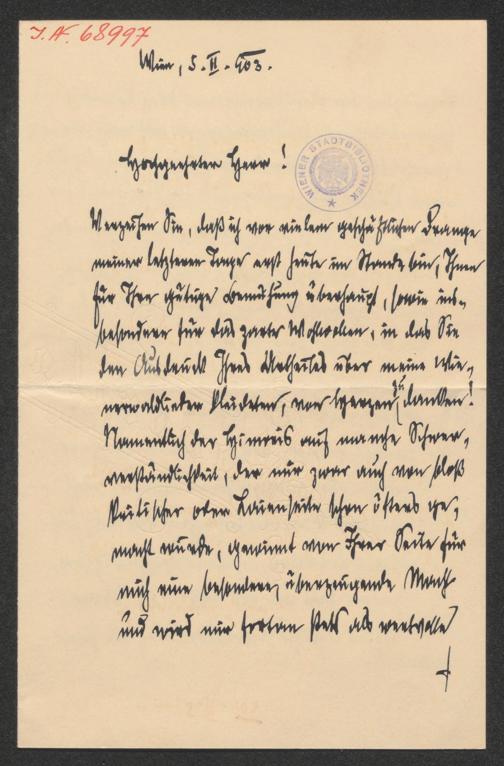 J. N. 68997
Wien, 5. II. 903.
WIENER STADTBIBLIOTHEK
Hochgeehrter Herr!
Verzeihen Sie, daß ich vor vielem geschäftlichen Drange
meiner letzteren Tage erst heute im Stande bin, Ihnen
für Ihre gütige Bemühung überhaupt, sowie ins-
besondere für das zarte Wohlwollen, in das Sie
den Ausdruck Ihres Urtheiles über meine Wie-
nerwaldlieder kleideten, von Herzen zu danken!
Namentlich der Hinweis auf manche Schwer-
verständlichkeit, der mir zwar auch von bloß
kritischer oder Laienseite schon öfters ge-
macht wurde, gewinnt von Ihrer Seite für
mich eine besondere, überzeugende Macht
und wird mir fortan stets als wertvolle